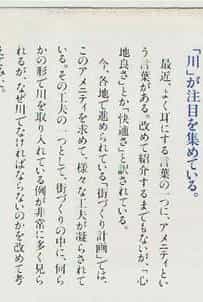 「川」が注目を集めている。
最近、よく耳にする言葉の一つに、アメニティとい
う言葉がある。改めて紹介するまでもないが、「心
地良さ」とか、「快適さ」と訳されている。
今、各地で進められている「街づくり計画」では、
このアメニティを求めて、様々な工夫が凝らされて
いる。その工夫の一つとして、街づくりの中に、何ら
かの形で川を取り入れている例が非常に多く見ら
れるが、なぜ川でなければならないのかを改めて考